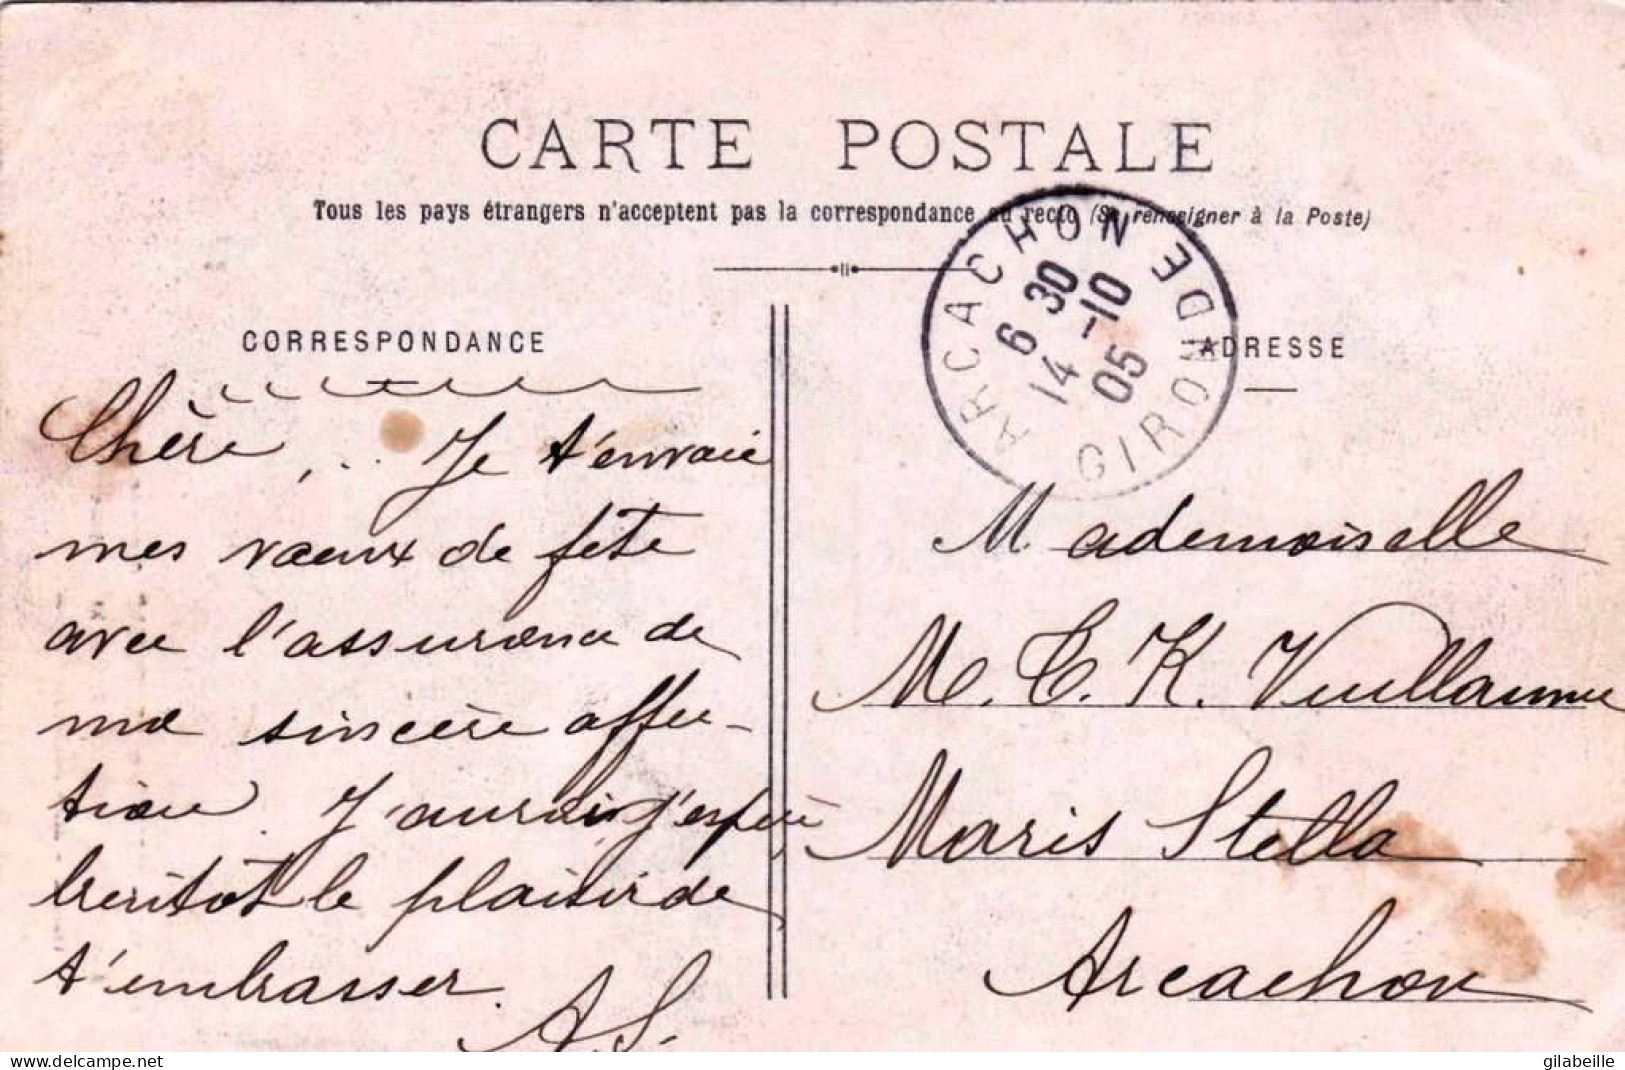 CARTE POSTALE
Tous les pays étrangers n'acceptent pas la correspondance au recto (Se renseigner à la Poste)
ARCACHON GIRONDE
6 30
14 -10
05
CORRESPONDANCE
Chère, .. Je t'envoie
mes voeux de fête
avec l'assurance de
ma sincère affec-
tion. J'aurai j'espère,
bientôt le plaisir de
t'embrasser.
A.S.
ADRESSE
Mademoiselle
M. C. K. Vuillaume
Maris Stella
Arcachon
www.delcampe.net
gilabeille